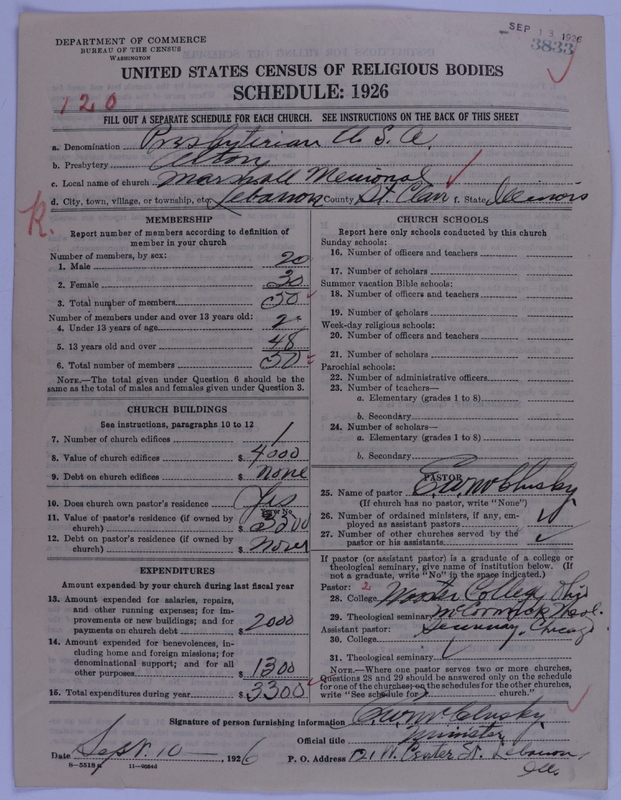 SEP 13 1926
3833
DEPARTMENT OF COMMERCE
BUREAU OF THE CENSUS
WASHINGTON
UNITED STATES CENSUS OF RELIGIOUS BODIES
SCHEDULE: 1926
120
FILL OUT A SEPARATE SCHEDULE FOR EACH CHURCH. SEE INSTRUCTIONS ON THE BACK OF THIS SHEET
a. Denomination Presbyterian U. S. A.
b. Presbytery Alton
c. Local name of church Marshall Memorial
d. City, town, village, or township, etc. Lebanon County St. Clair f. State Illinois
R.
MEMBERSHIP
Report number of members according to definition of
member in your church
Number of members, by sex:
1. Male 20
2. Female 30
3. Total number of members 50
Number of members under and over 13 years old:
4. Under 13 years of age 2
5. 13 years old and over 48
6. Total number of members 50
NOTE.—The total given under Question 6 should be the
same as the total of males and females given under Question 3.
CHURCH BUILDINGS
See instructions, paragraphs 10 to 12
7. Number of church edifices 1
8. Value of church edifices $ 4000
9. Debt on church edifices $ none
10. Does church own pastor's residence Yes
11. Value of pastor's residence (if owned by
church) $ 3200
12. Debt on pastor's residence (if owned by
church) $ none
EXPENDITURES
Amount expended by your church during last fiscal year
13. Amount expended for salaries, repairs,
and other running expenses; for im-
provements or new buildings; and for
payments on church debt $ 2000
14. Amount expended for benevolences, in-
cluding home and foreign missions; for
denominational support; and for all
other purposes $ 1300
15. Total expenditures during year $ 3300
CHURCH SCHOOLS
Report here only schools conducted by this church
Sunday schools:
16. Number of officers and teachers
17. Number of scholars
Summer vacation Bible schools:
18. Number of officers and teachers
19. Number of scholars
Week-day religious schools:
20. Number of officers and teachers
21. Number of scholars
Parochial schools:
22. Number of administrative officers
23. Number of teachers—
a. Elementary (grades 1 to 8)
b. Secondary
24. Number of scholars—
a. Elementary (grades 1 to 8)
b. Secondary
PASTOR
25. Name of pastor E. W. McClusky
(If church has no pastor, write "None")
26. Number of ordained ministers, if any, em-
ployed as assistant pastors
27. Number of other churches served by the
pastor or his assistants
If pastor (or assistant pastor) is a graduate of a college or
theological seminary, give name of institution below. (If
not a graduate, write "No" in the space indicated.)
Pastor: 2
28. College Wooster College, Ohio
29. Theological seminary McCormick Theol.
Assistant pastor: Seminary, Chicago
30. College
31. Theological seminary
NOTE.—Where one pastor serves two or more churches,
Questions 28 and 29 should be answered only on the schedule
for one of the churches; on the schedules for the other churches,
write "See schedule for church."
Signature of person furnishing information E. W. McClusky
Official title Minister
Date Sept. 10 —, 1926
P. O. Address 121 W. Center St. Lebanon,
Ill.
8—5518 a 11—9064d